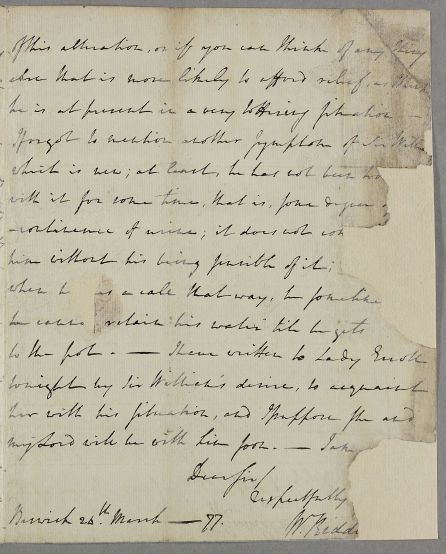 of this alteration, or if you can think of any thing
else that is more likely to afford relief, as I think
he is at present in a very tottering situation —
I forgot to mention another symptom of Sir Willi
which is new; at least, he has not been
with it for some time, that is, some degree
-continence of urine; it does not con
him without his being sensible of it;
when h as a call that way, he sometime
he cann retain his water till he gets
to the pot. — I have written to Lady Erroll
tonight by Sir William's desire, to acquaint
her with his situation, and I suppose she and
my Lord will be with him soon. — I am
Dear Sir
respectfully
Berwick 24th. March — 77. W. Kidd